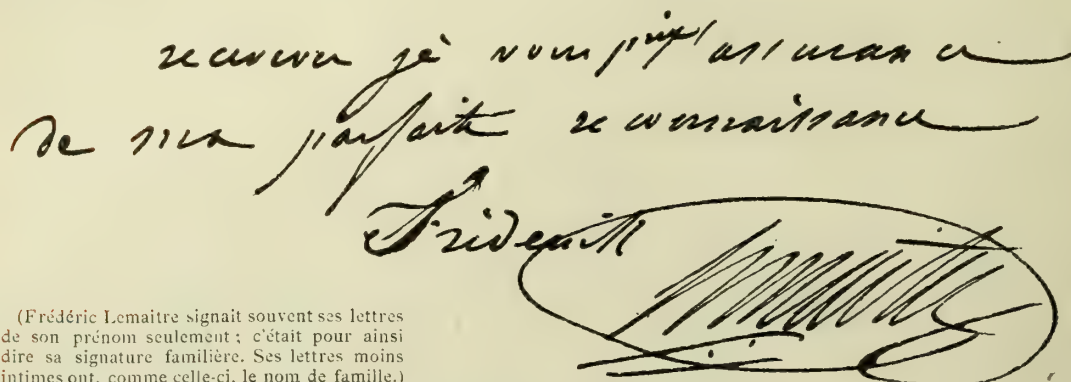 recevez je vous prie l'assurance
de ma parfaite reconnaissance
Frédérick Lemaitre
(Frédéric Lemaitre signait souvent ses lettres
de son prénom seulement ; c'était pour ainsi
dire sa signature familière. Ses lettres moins
intimes ont, comme celle-ci, le nom de famille.)